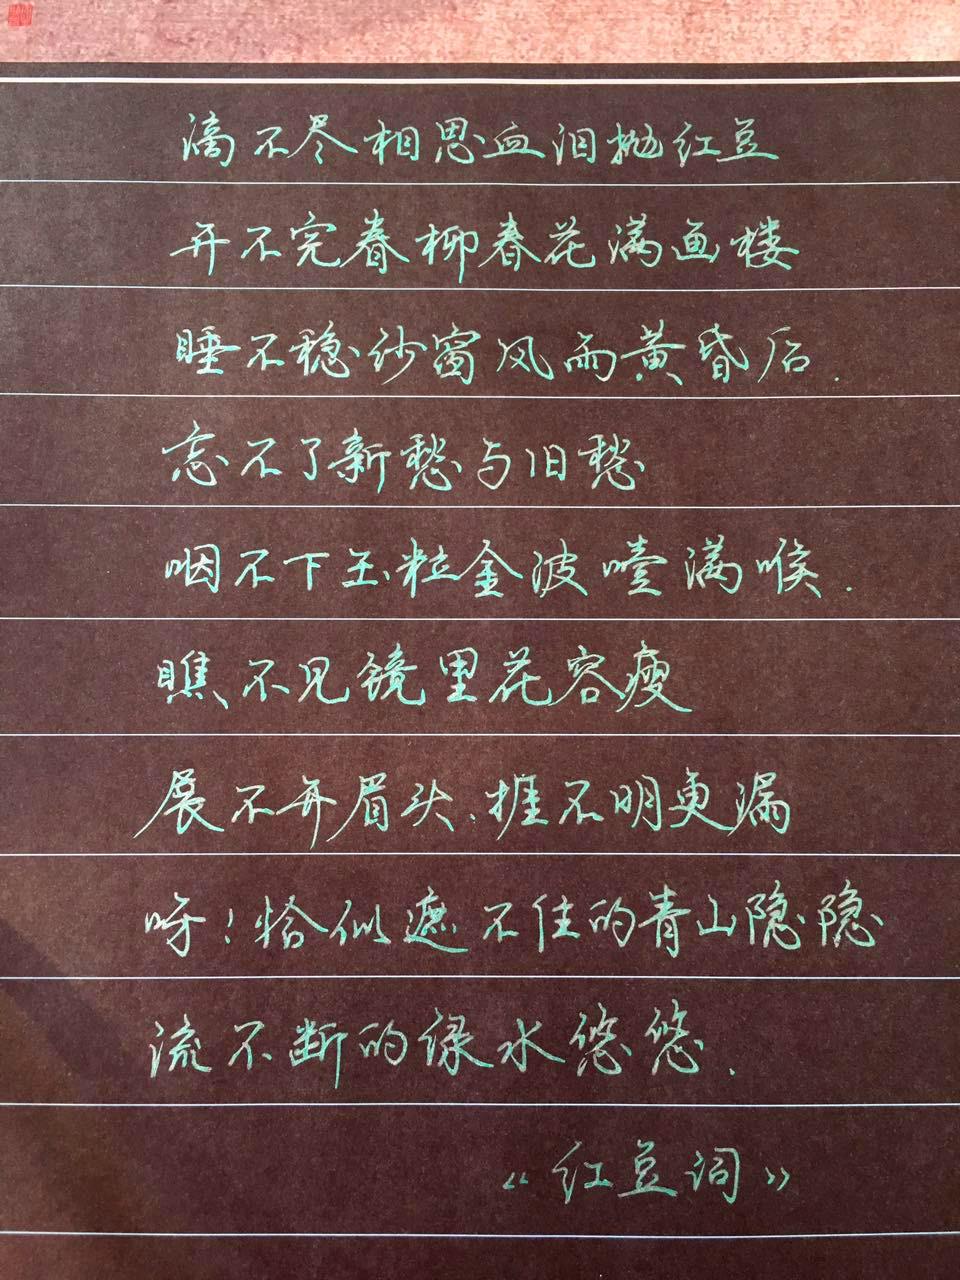 滴不尽相思血泪抛红豆
开不完春柳春花满画楼
睡不稳纱窗风雨黄昏后.
忘不了新愁与旧愁
咽不下玉粒金波噎满喉.
瞧不见镜里花容瘦
展不开眉头、捱不明更漏
呀！恰似遮不住的青山隐隐
流不断的绿水悠悠.
《红豆词》